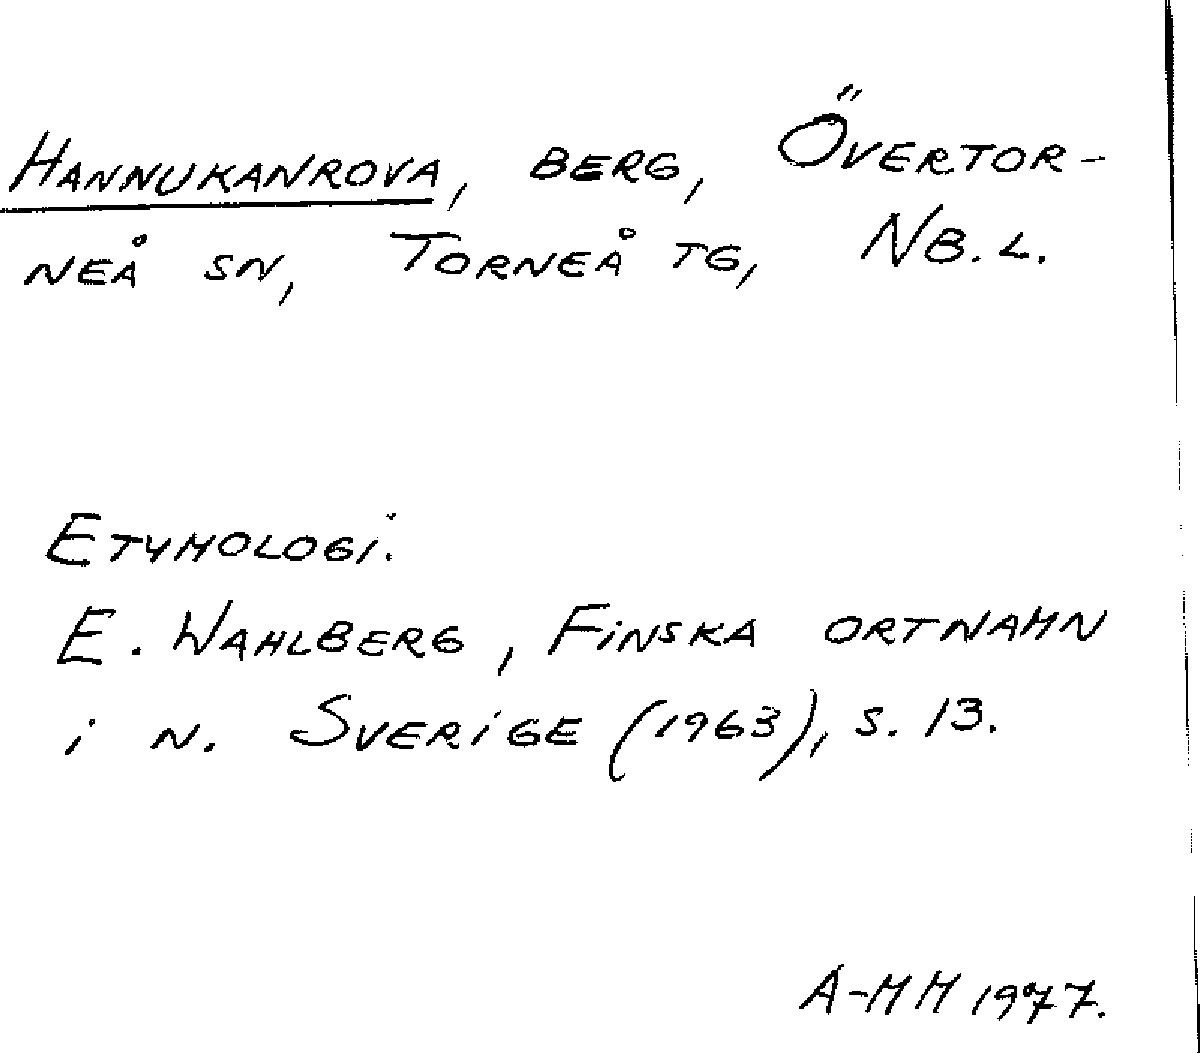 HANNUKANROVA, BERG, ÖVERTOR-
NEÅ SN, TORNEÅ TG, NB.L.
ETYMOLOGI.
E. WAHLBERG, FINSKA ORTNAMN
i N. SVERIGE (1963), S. 13.
A-MM 1977.